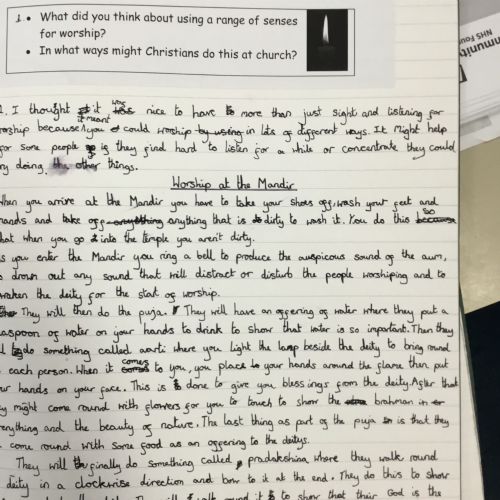 1. • What did you think about using a range of senses
for worship?
• In what ways might Christians do this at church?
mmunity
NHS Foun
1. I thought it was nice to have more than just sight and listening for
worship because it meant you could worship in lots of different ways. It might help
for some people is they find hard to listen for a while or concentrate they could
try doing other things.
Worship at the Mandir
When you arrive at the Mandir you have to take your shoes off, wash your feet and
hands and take off anything that is dirty to wash it. You do this so
that when you go into the temple you aren't dirty.
As you enter the Mandir you ring a bell to produce the auspicous sound of the aum,
to drown out any sound that will distract or disturb the people worshiping and to
awaken the deity for the start of worship.
They will then do the puja. They will have an offering of water where they put a
teaspoon of water on your hands to drink to show that water is so important. Then they
do something called aarti where you light the lamp beside the deity to bring round
each person. When it comes to you, you place your hands around the flame then put
your hands on your face. This is done to give you blessings from the deity. After that
they might come round with flowers for you to touch to show the brahman in
everything and the beauty of nature. The last thing as part of the puja is that they
come round with some food as an offering to the deitys.
They will finally do something called pradakshina where they walk round
deity in a clockwise direction and bow to it at the end. They do this to show
walk round it to show that their God is the